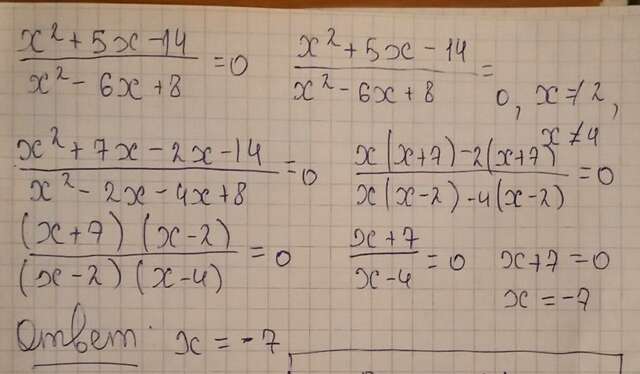 (x² + 5x - 14)/(x² - 6x + 8) = 0
(x² + 5x - 14)/(x² - 6x + 8) = 0, x ≠ 2, x ≠ 4
(x² + 7x - 2x - 14)/(x² - 2x - 4x + 8) = 0
(x(x+7) - 2(x+7))/(x(x-2) - 4(x-2)) = 0
((x+7)(x-2))/((x-2)(x-4)) = 0
(x+7)/(x-4) = 0
x+7 = 0
x = -7
Ответ: x = -7